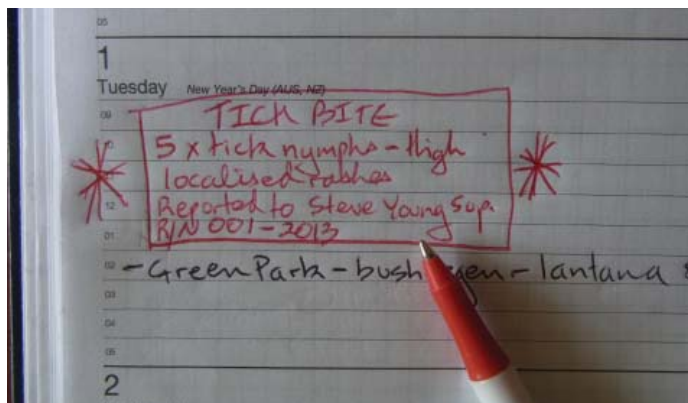 05
1
Tuesday New Year's Day (AUS, NZ)
09
TICK BITE
5 x tick nymphs - thigh
localised rashes
12
Reported to Steve Young Sup.
01
R/N 001-2013
02
- Green Park - bush regen - lantana &
03
04
05
2